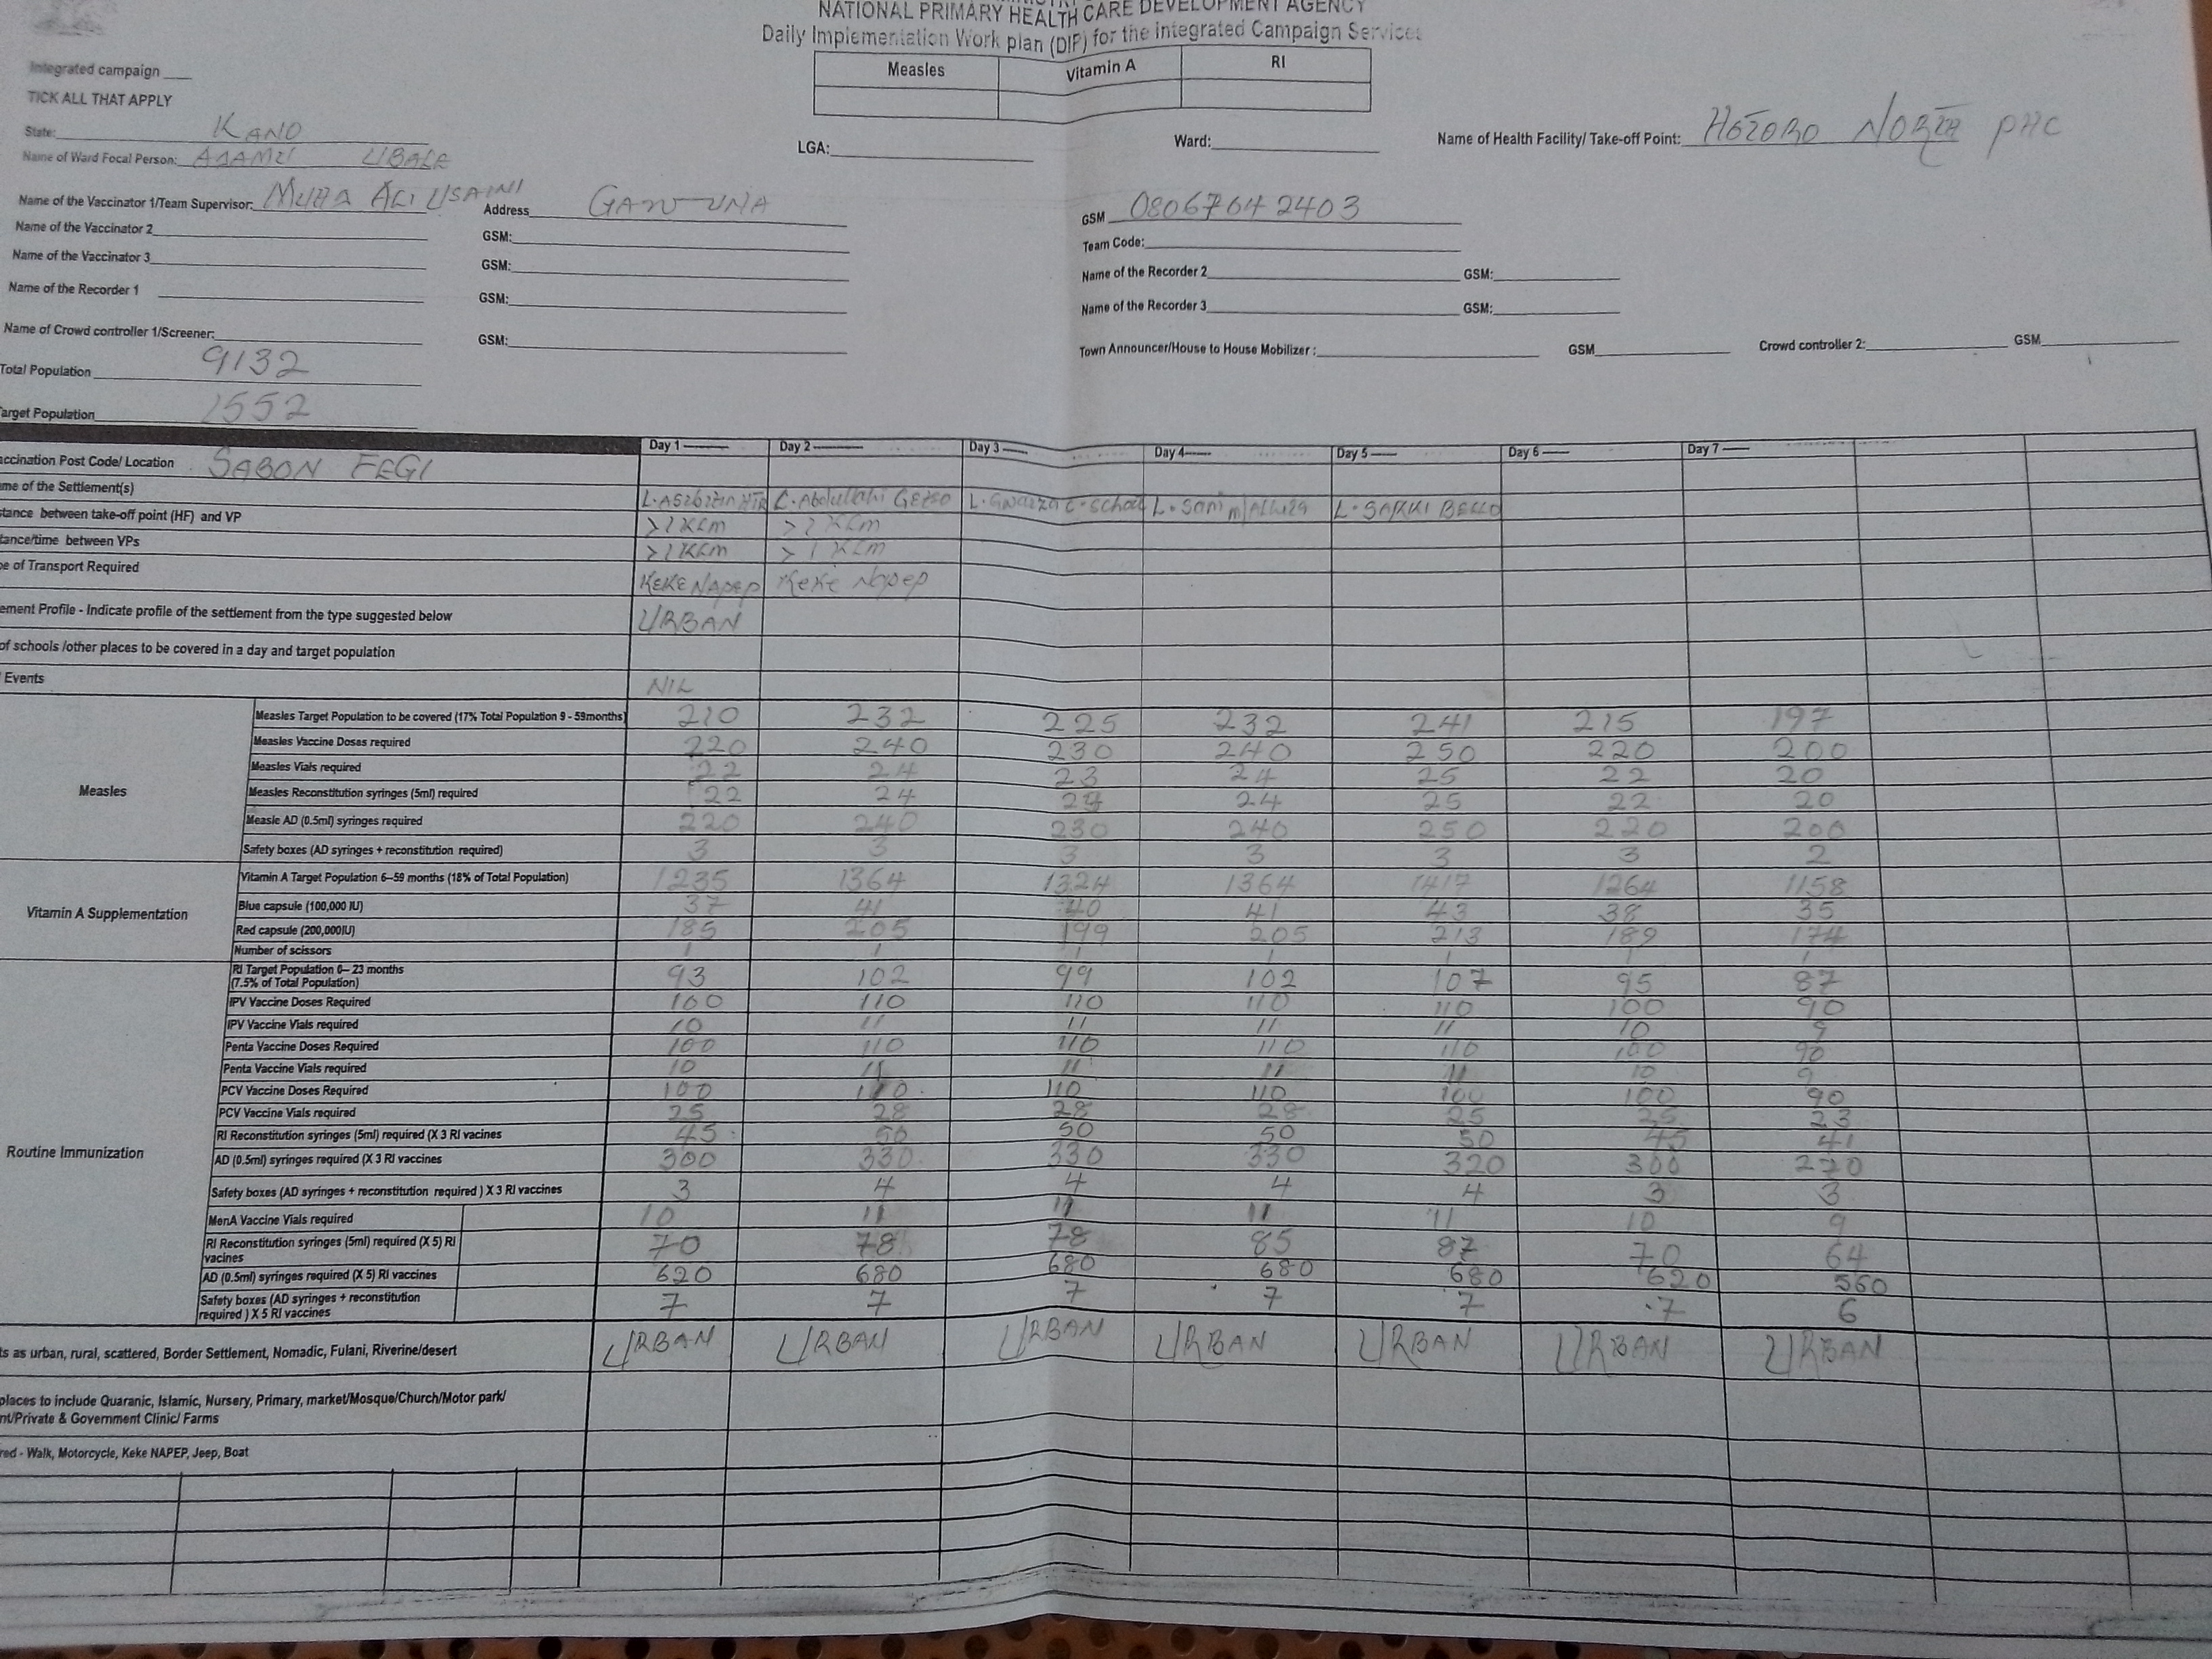 NATIONAL PRIMARY HEALTH CARE DEVELOPMENT AGENCY
Daily Implementation Work plan (DIP) for the Integrated Campaign Services
Integrated campaign
Measles Vitamin A RI
TICK ALL THAT APPLY
State: KANO
LGA: Ward: Name of Health Facility/ Take-off Point: HOTORO NORTH PHC
Name of Ward Focal Person: UBALE
Name of the Vaccinator 1/Team Supervisor: ALI USAINI Address GSM 08067642403
Name of the Vaccinator 2 GSM: Team Code:
Name of the Vaccinator 3 GSM: Name of the Recorder 2 GSM:
Name of the Recorder 1 GSM: Name of the Recorder 3 GSM:
Name of Crowd controller 1/Screener: GSM: Town Announcer/House to House Mobilizer : GSM Crowd controller 2: GSM
Total Population 9132
Target Population 1552
Day 1 Day 2 Day 3 Day 4 Day 5 Day 6 Day 7
Vaccination Post Code/ Location SABON FEGI
me of the Settlement(s) L. C. Abdullahi L. L. SANI L. SARKI BELLO
stance between take-off point (HF) and VP >1 KLm >1 KLm
tance/time between VPs >1 KLm >1 KLm
e of Transport Required KEKE NAPEP Keke Napep
ement Profile - Indicate profile of the settlement from the type suggested below URBAN
of schools /other places to be covered in a day and target population
Events NIL
Measles
Measles Target Population to be covered (17% Total Population 9 - 59months) 210 232 225 232 241 215 197
Measles Vaccine Doses required 220 240 230 240 250 220 200
Measles Vials required 22 24 23 24 25 22 20
Measles Reconstitution syringes (5ml) required 22 24 24 25 22 20
Measle AD (0.5ml) syringes required 220 240 230 240 250 220 200
Safety boxes (AD syringes + reconstitution required) 3 3 3 3 3 3 2
Vitamin A Supplementation
Vitamin A Target Population 6–59 months (18% of Total Population) 1235 1364 1324 1364 1417 1264 1158
Blue capsule (100,000 IU) 37 41 40 41 43 38 35
Red capsule (200,000IU) 185 205 199 205 213 189 174
Number of scissors 1 1 1 1 1 1 1
Routine Immunization
RI Target Population 0– 23 months
(7.5% of Total Population) 93 102 99 102 107 95 87
IPV Vaccine Doses Required 100 110 110 110 110 100 90
IPV Vaccine Vials required 10 11 11 11 11 10 9
Penta Vaccine Doses Required 100 110 110 110 110 100 90
Penta Vaccine Vials required 10 11 11 11 11 10 9
PCV Vaccine Doses Required 100 110 110 110 100 100 90
PCV Vaccine Vials required 25 28 28 28 25 25 23
RI Reconstitution syringes (5ml) required (X 3 RI vacines 45 50 50 50 50 45 41
AD (0.5ml) syringes required (X 3 RI vaccines 300 330 330 330 320 300 270
Safety boxes (AD syringes + reconstitution required ) X 3 RI vaccines 3 4 4 4 4 3 3
MenA Vaccine Vials required 10 11 11 11 11 10 9
RI Reconstitution syringes (5ml) required (X 5) RI
vacines 70 78 78 85 87 70 64
AD (0.5ml) syringes required (X 5) RI vaccines 620 680 680 680 680 620 560
Safety boxes (AD syringes + reconstitution
required ) X 5 RI vaccines 7 7 7 7 7 7 6
ts as urban, rural, scattered, Border Settlement, Nomadic, Fulani, Riverine/desert URBAN URBAN URBAN URBAN URBAN URBAN URBAN
places to include Quaranic, Islamic, Nursery, Primary, market/Mosque/Church/Motor park/
nt/Private & Government Clinic/ Farms
red - Walk, Motorcycle, Keke NAPEP, Jeep, Boat